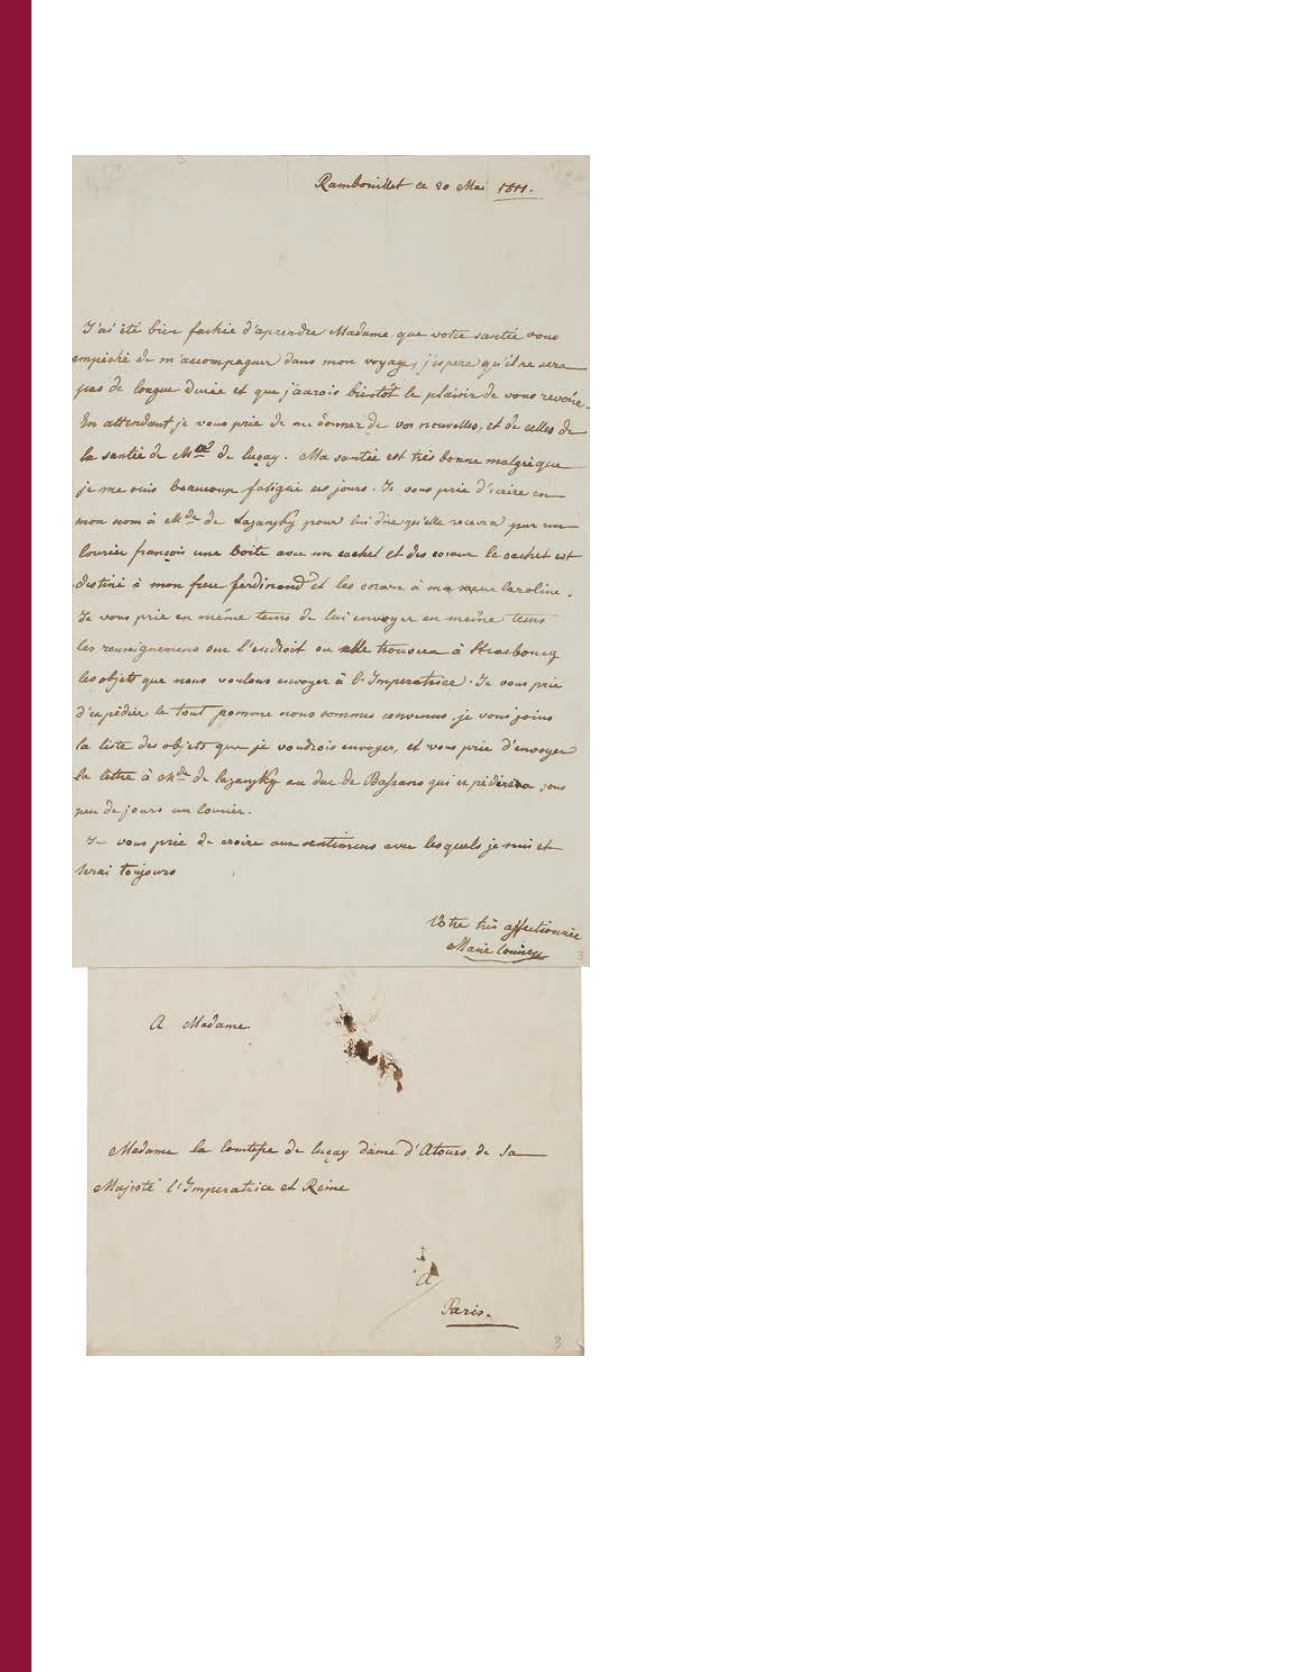 Rambouillet ce 20 Mai 1811.
J'ai été bien fachée d'aprendre Madame que votre santée vous
empeché de m'accompagner dans mon voyage, j'espere qu'il ne sera
pas de longue durée et que j'aurois bientot le plaisir de vous revoir.
En attendant je vous prie de me donner de vos nouvelles, et de celles de
la santée de de luçay. Ma santée est très bonne malgré que
je me suis beaucoup fatigué ces jours. Je vous prie d'écrire en
mon nom à Mde de Lazansky pour lui dire qu'elle recevra par un
Courier françois une boite avec un cachet et des le cachet est
destiné à mon frere ferdinand et les à ma sœur Caroline.
Je vous prie en même tems de lui envoyer en même tems
les renseignemens sur l'endroit ou elle trouvera à Strasbourg
les objets que nous voulons envoyer à l'Imperatrice. Je vous prie
d'expédier le tout comme nous sommes convenus, je vous joins
la liste des objets que je voudrois envoyer, et vous prie d'envoyer
la lettre à Mde de lazansky au duc de Bassano qui expédiera sous
peu de jours un Courier.
Je vous prie de croire aux sentimens avec lesquels je suis et
serai toujours
Votre très affectionnée
Marie Louise
3
A Madame
Madame la Comtesse de luçay dame d'Atours de Sa
Majesté l'Imperatrice et Reine
à
Paris.
3